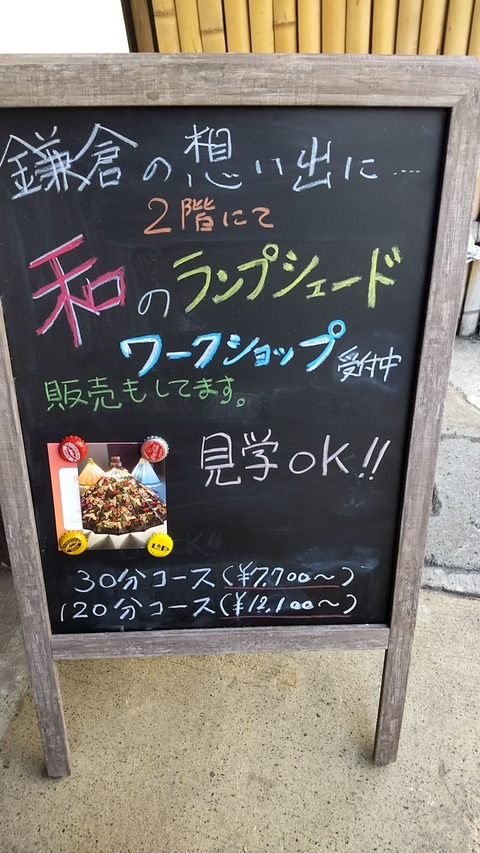 鎌倉の想い出に....
2階にて
和のランプシェード
ワークショップ 受付中
販売もしてます。
見学OK!!
30分コース(¥7,700～)
120分コース(¥12,100～)